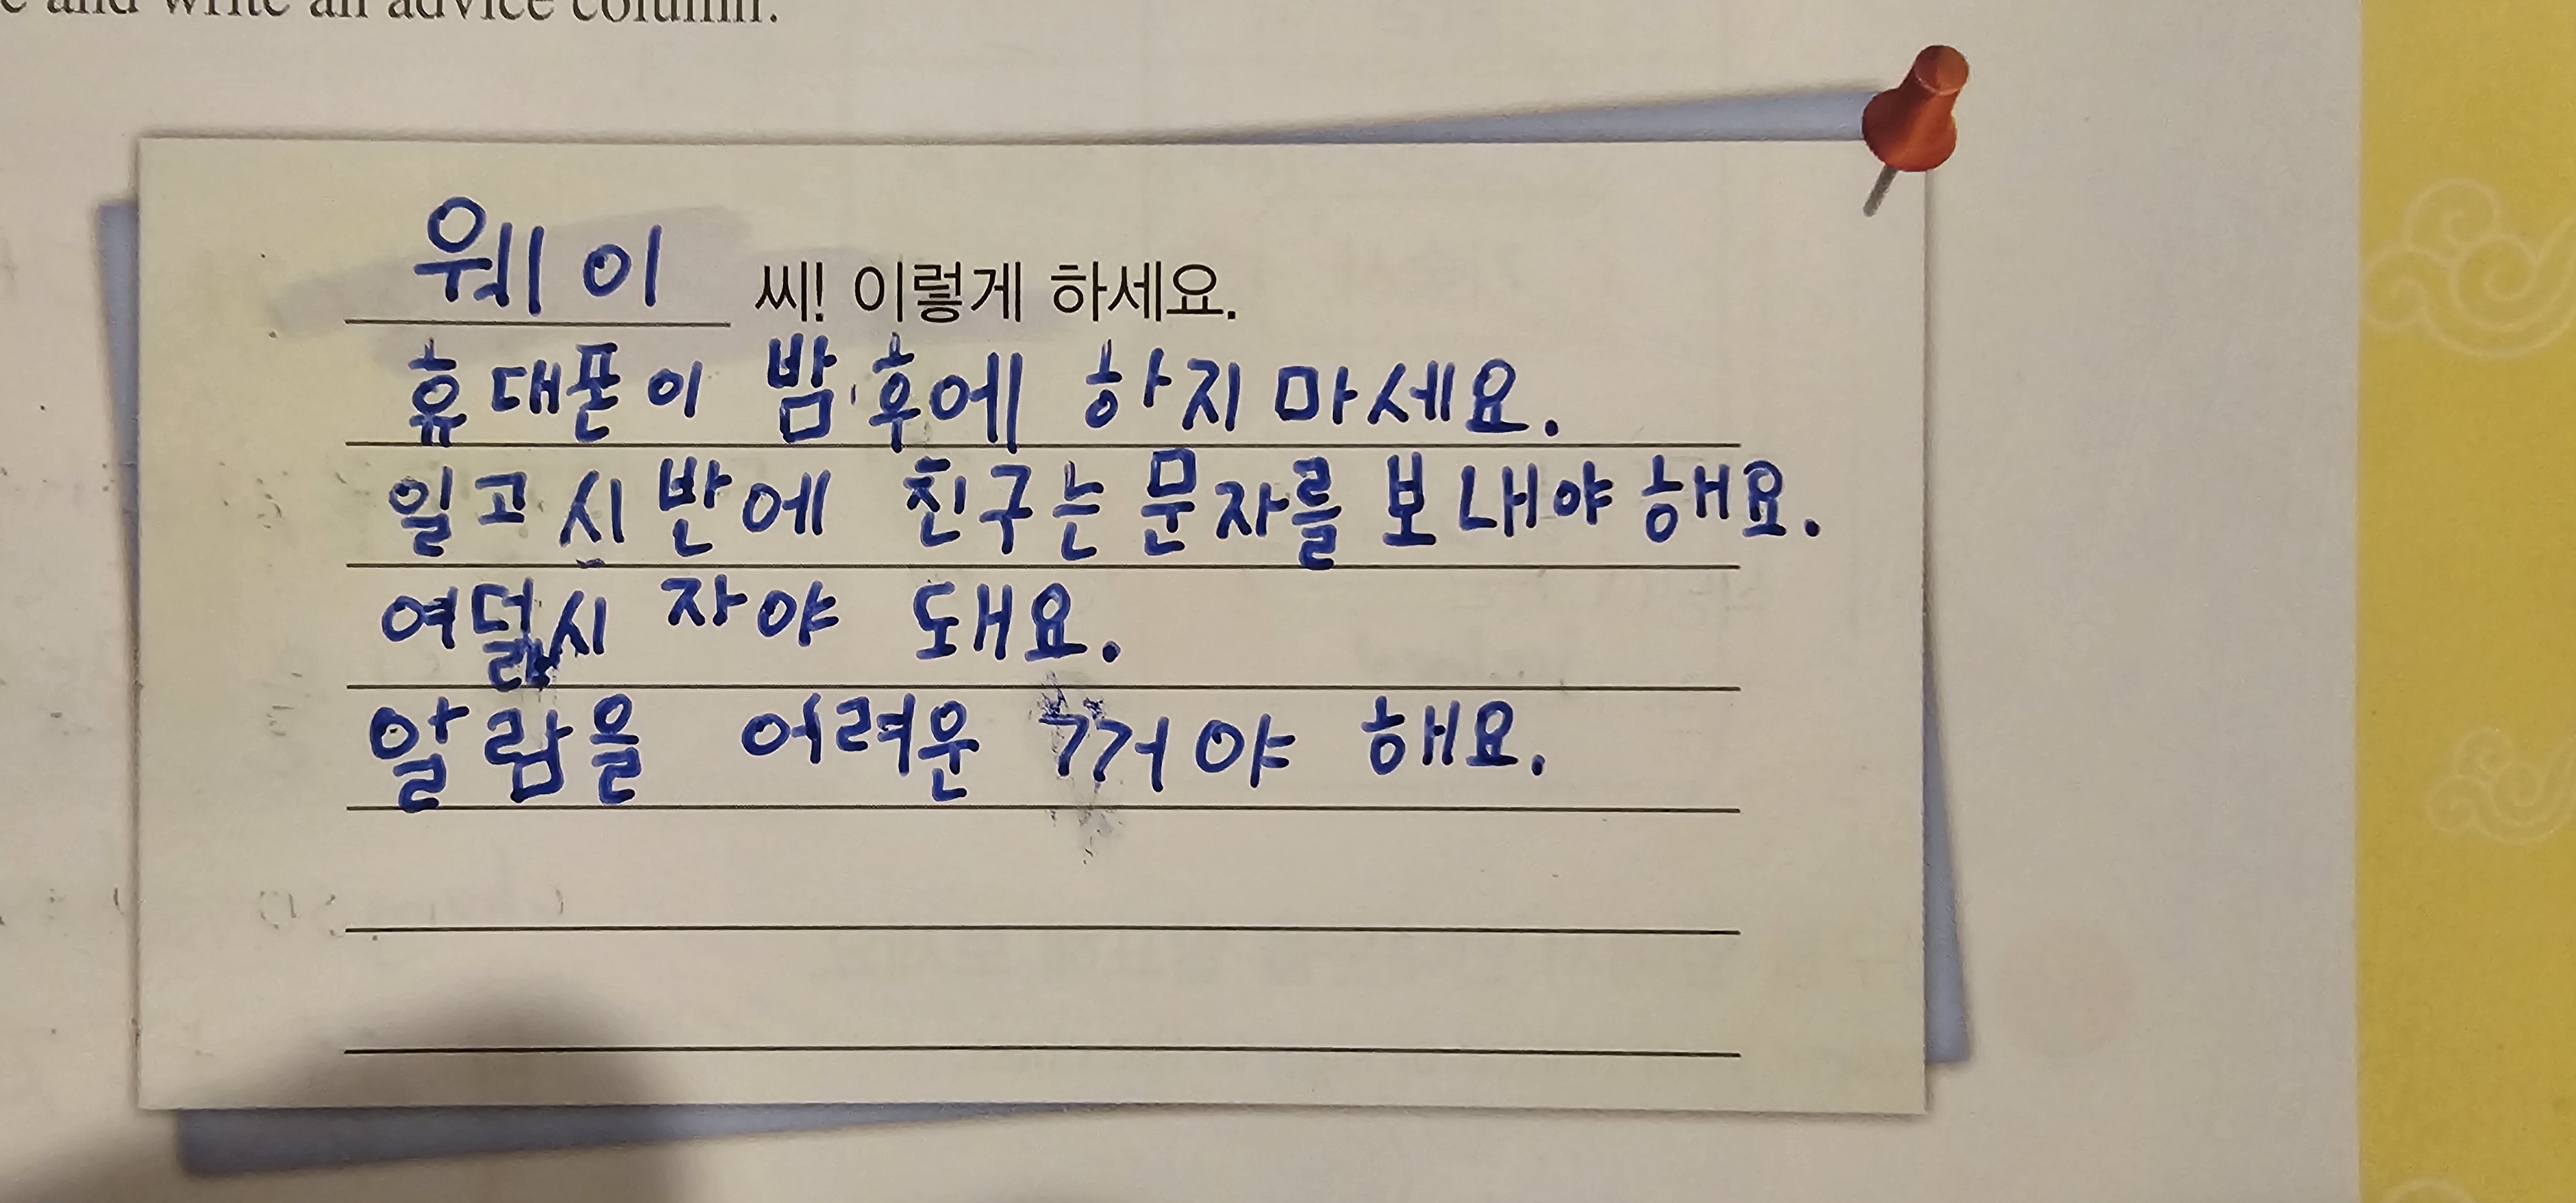 and write an advice column.
웨이 씨! 이렇게 하세요.
휴대폰이 밤후에 하지마세요.
일고시 반에 친구는 문자를 보내야 해요.
여덟시 자야 돼요.
알람을 어려운 꺼야 해요.